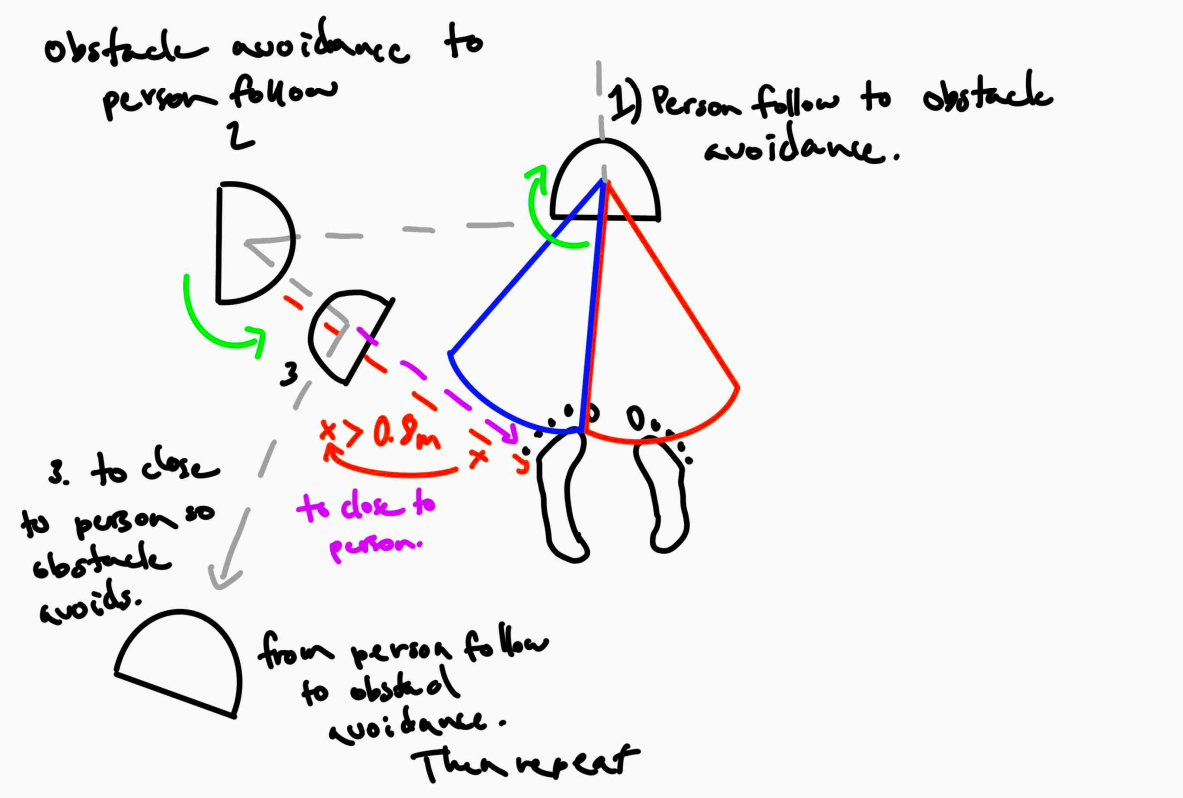 obstacle avoidance to
person follow
2
1) Person follow to obstacle
avoidance.
3
x > 0.8m
x
to close to
person.
3. to close
to person so
obstacle
avoids.
from person follow
to obstacl
avoidance.
Then repeat